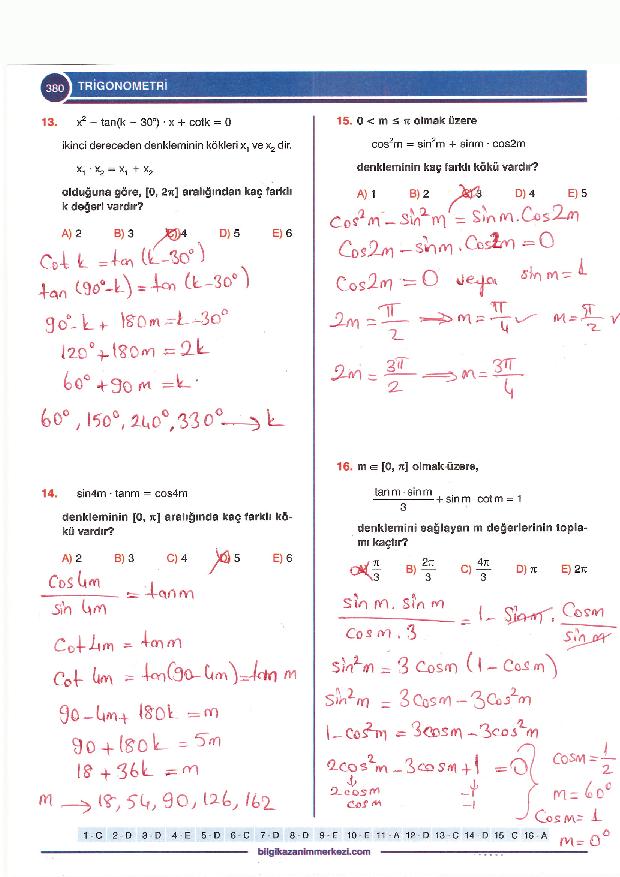 380 TRİGONOMETRİ
13. x² – tan(k – 30°) · x + cotk = 0
ikinci dereceden denkleminin kökleri x₁ ve x₂ dir.
x₁ · x₂ = x₁ + x₂
olduğuna göre, [0, 2π] aralığından kaç farklı
k değeri vardır?
A) 2 B) 3 C) 4 D) 5 E) 6
Cot k = tan (k-30°)
tan (90°-k) = tan (k-30°)
90°-k + 180m = k-30°
120° + 180m = 2k
60° + 90m = k
60°, 150°, 240°, 330° → k
14. sin4m · tanm = cos4m
denkleminin [0, π] aralığında kaç farklı kö-
kü vardır?
A) 2 B) 3 C) 4 D) 5 E) 6
Cos4m / sin 4m = tanm
Cot4m = tanm
Cot 4m = tan(90-4m) = tan m
90-4m + 180k = m
90 + 180k = 5m
18 + 36k = m
m → 18, 54, 90, 126, 162
15. 0 < m ≤ π olmak üzere
cos²m = sin²m + sinm · cos2m
denkleminin kaç farklı kökü vardır?
A) 1 B) 2 C) 3 D) 4 E) 5
Cos²m - Sin²m = Sinm.Cos2m
Cos2m - sinm.Cos2m = 0
Cos2m = 0 veya sinm = 1
2m = π/2 → m = π/4 ✓ m = π/2 ✓
2m = 3π/2 → m = 3π/4
16. m ∈ [0, π] olmak üzere,
tanm · sinm / 3 + sinm cotm = 1
denklemini sağlayan m değerlerinin topla-
mı kaçtır?
A) π/3 B) 2π/3 C) 4π/3 D) π E) 2π
sin m. sin m / cosm.3 = 1 - Sinm. Cosm / sinm
sin²m = 3 Cosm (1 - Cosm)
Sin²m = 3Cosm - 3Cos²m
1-cos²m = 3cosm - 3cos²m
2cos²m - 3cosm + 1 = 0 Cosm = 1/2
2cosm -1 m = 60°
cosm -1 Cosm = 1
m = 0°
1 - C 2 - D 3 - D 4 - E 5 - D 6 - C 7 - D 8 - D 9 - E 10 - E 11 - A 12 - D 13 - C 14 - D 15 C 16 - A
bilgikazanimmerkezi.com